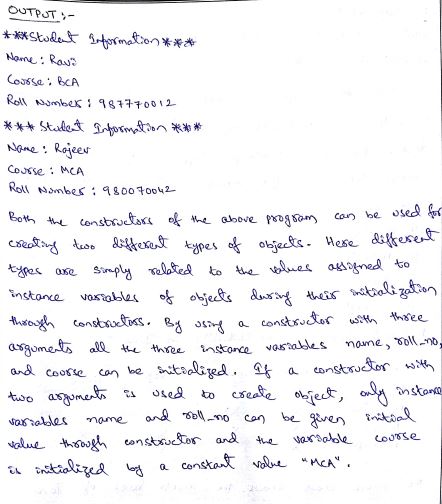 OUTPUT :-
***Student Information***
Name : Ravi
Course : BCA
Roll Number : 987770012
*** Student Information ***
Name : Rajeev
Course : MCA
Roll Number : 980070042
Both the constructors of the above program can be used for
creating two different types of objects. Here different
types are simply related to the values assigned to
instance variables of objects during their initialization
through constructors. By using a constructor with three
arguments all the three instance variables name, roll_no,
and course can be initialized. If a constructor with
two arguments is used to create object, only instance
variables name and roll_no can be given initial
value through constructor and the variable course
is initialized by a constant value "MCA".